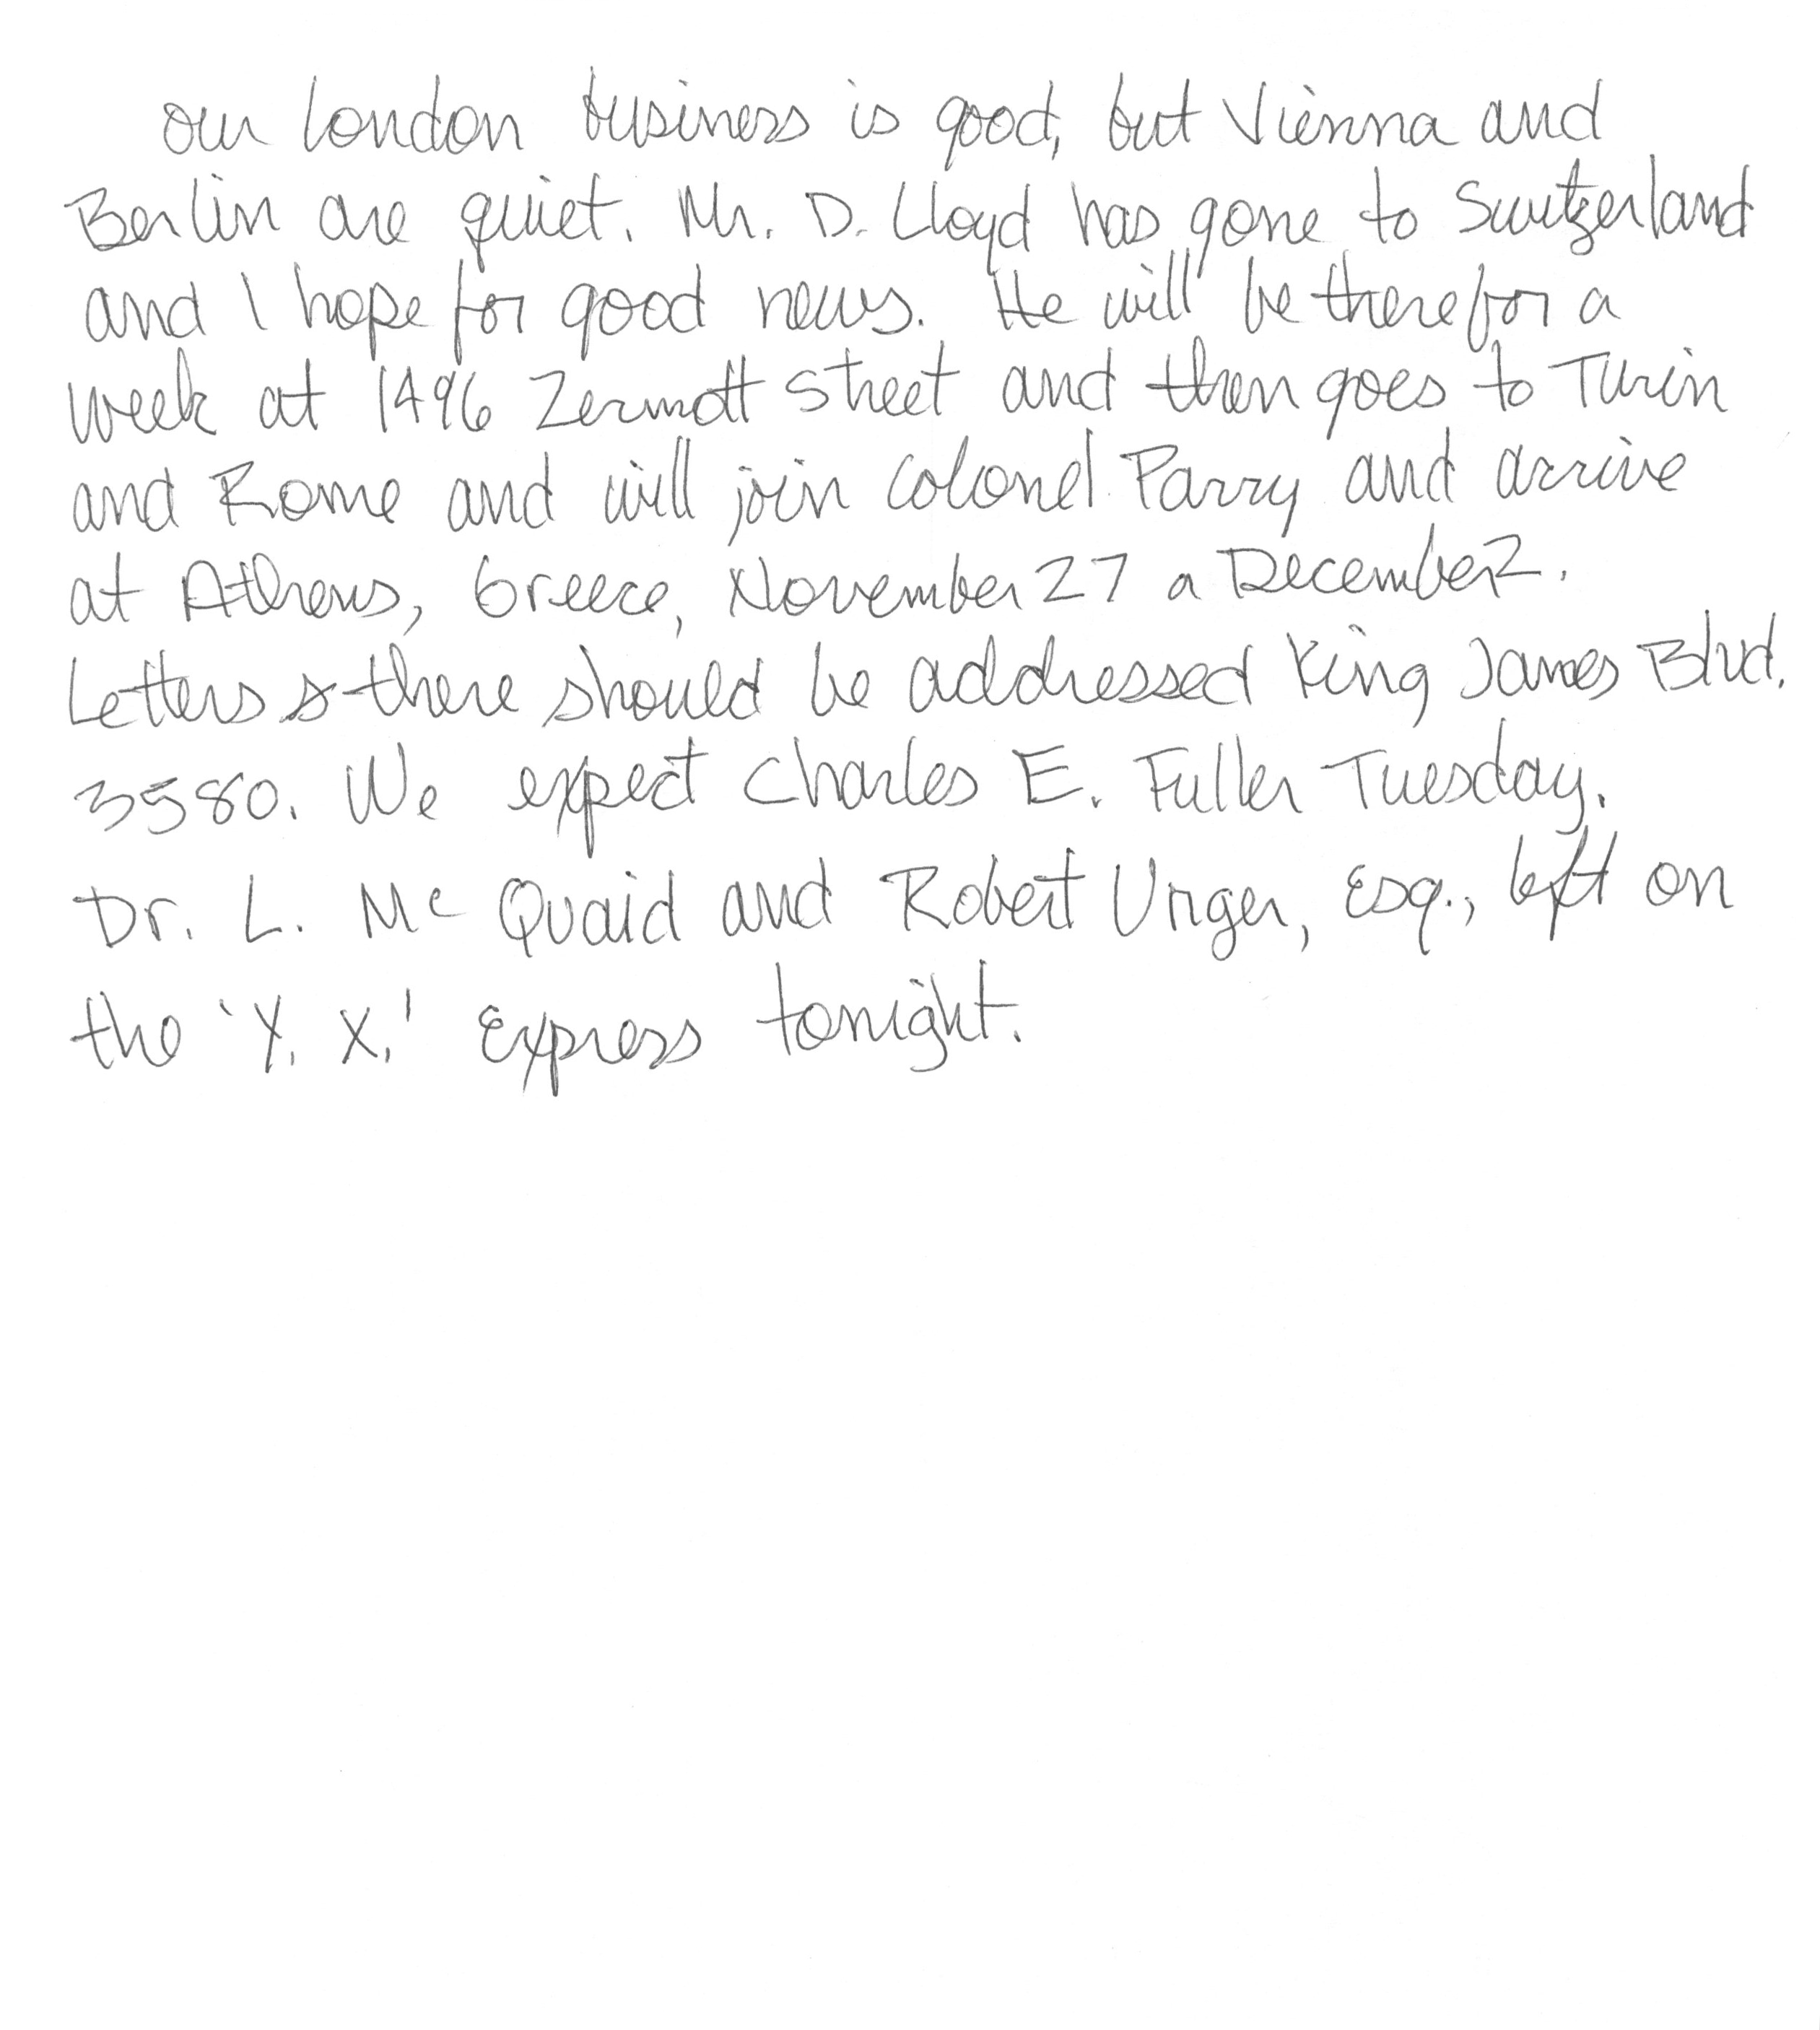 our London business is good, but Vienna and
Berlin are quiet. Mr. D. Lloyd has gone to Switzerland
and I hope for good news. He will be there for a
week at 1496 Zermott Street and then goes to Turin
and Rome and will join Colonel Parry and arrive
at Athens, Greece, November 27 a December 2.
Letters there should be addressed King James Blvd.
3580. We expect Charles E. Fuller Tuesday.
Dr. L. McQuaid and Robert Unger, Esq., left on
the 'Y. X.' Express tonight.